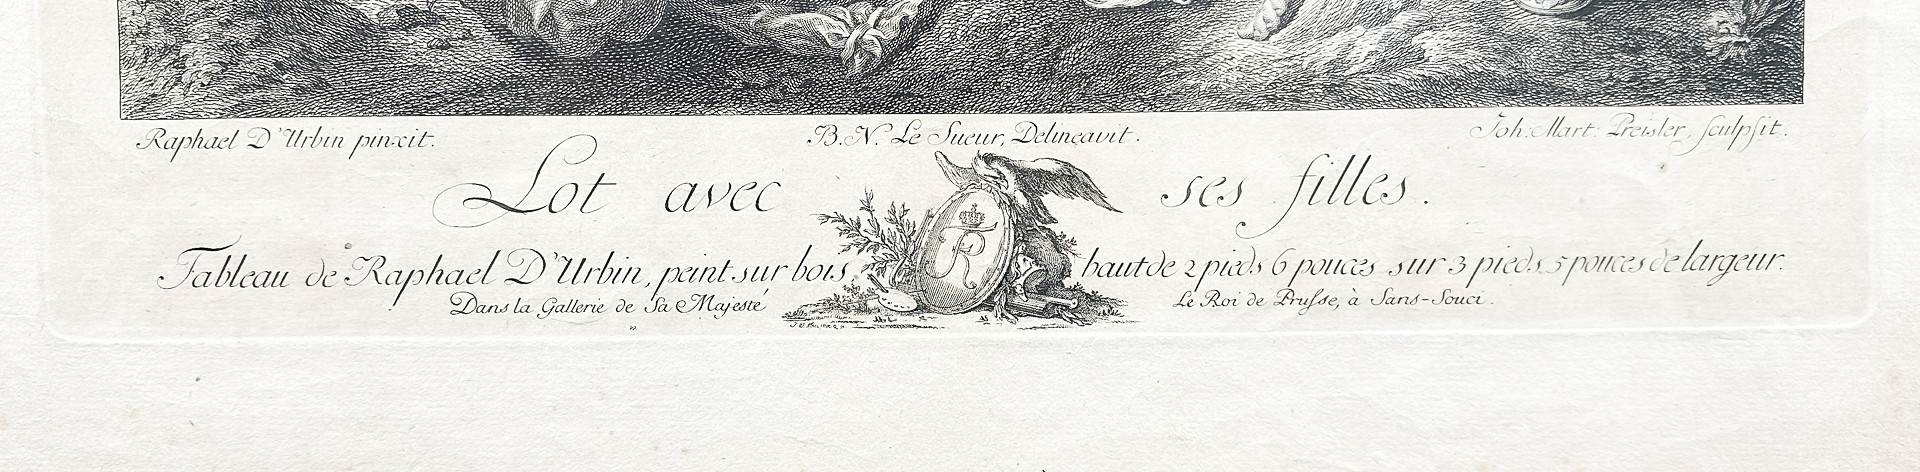 Raphael D'Urbin pinxit. B. N. Le Sueur, Delineavit. Joh. Mart: Preisler, sculpsit.
Lot avec ses filles.
FR
Tableau de Raphael D'Urbin, peint sur bois, haut de 2 pieds 6 pouces sur 3 pieds 5 pouces de largeur.
Dans la Gallerie de Sa Majesté Le Roi de Prusse, à Sans-Souci.